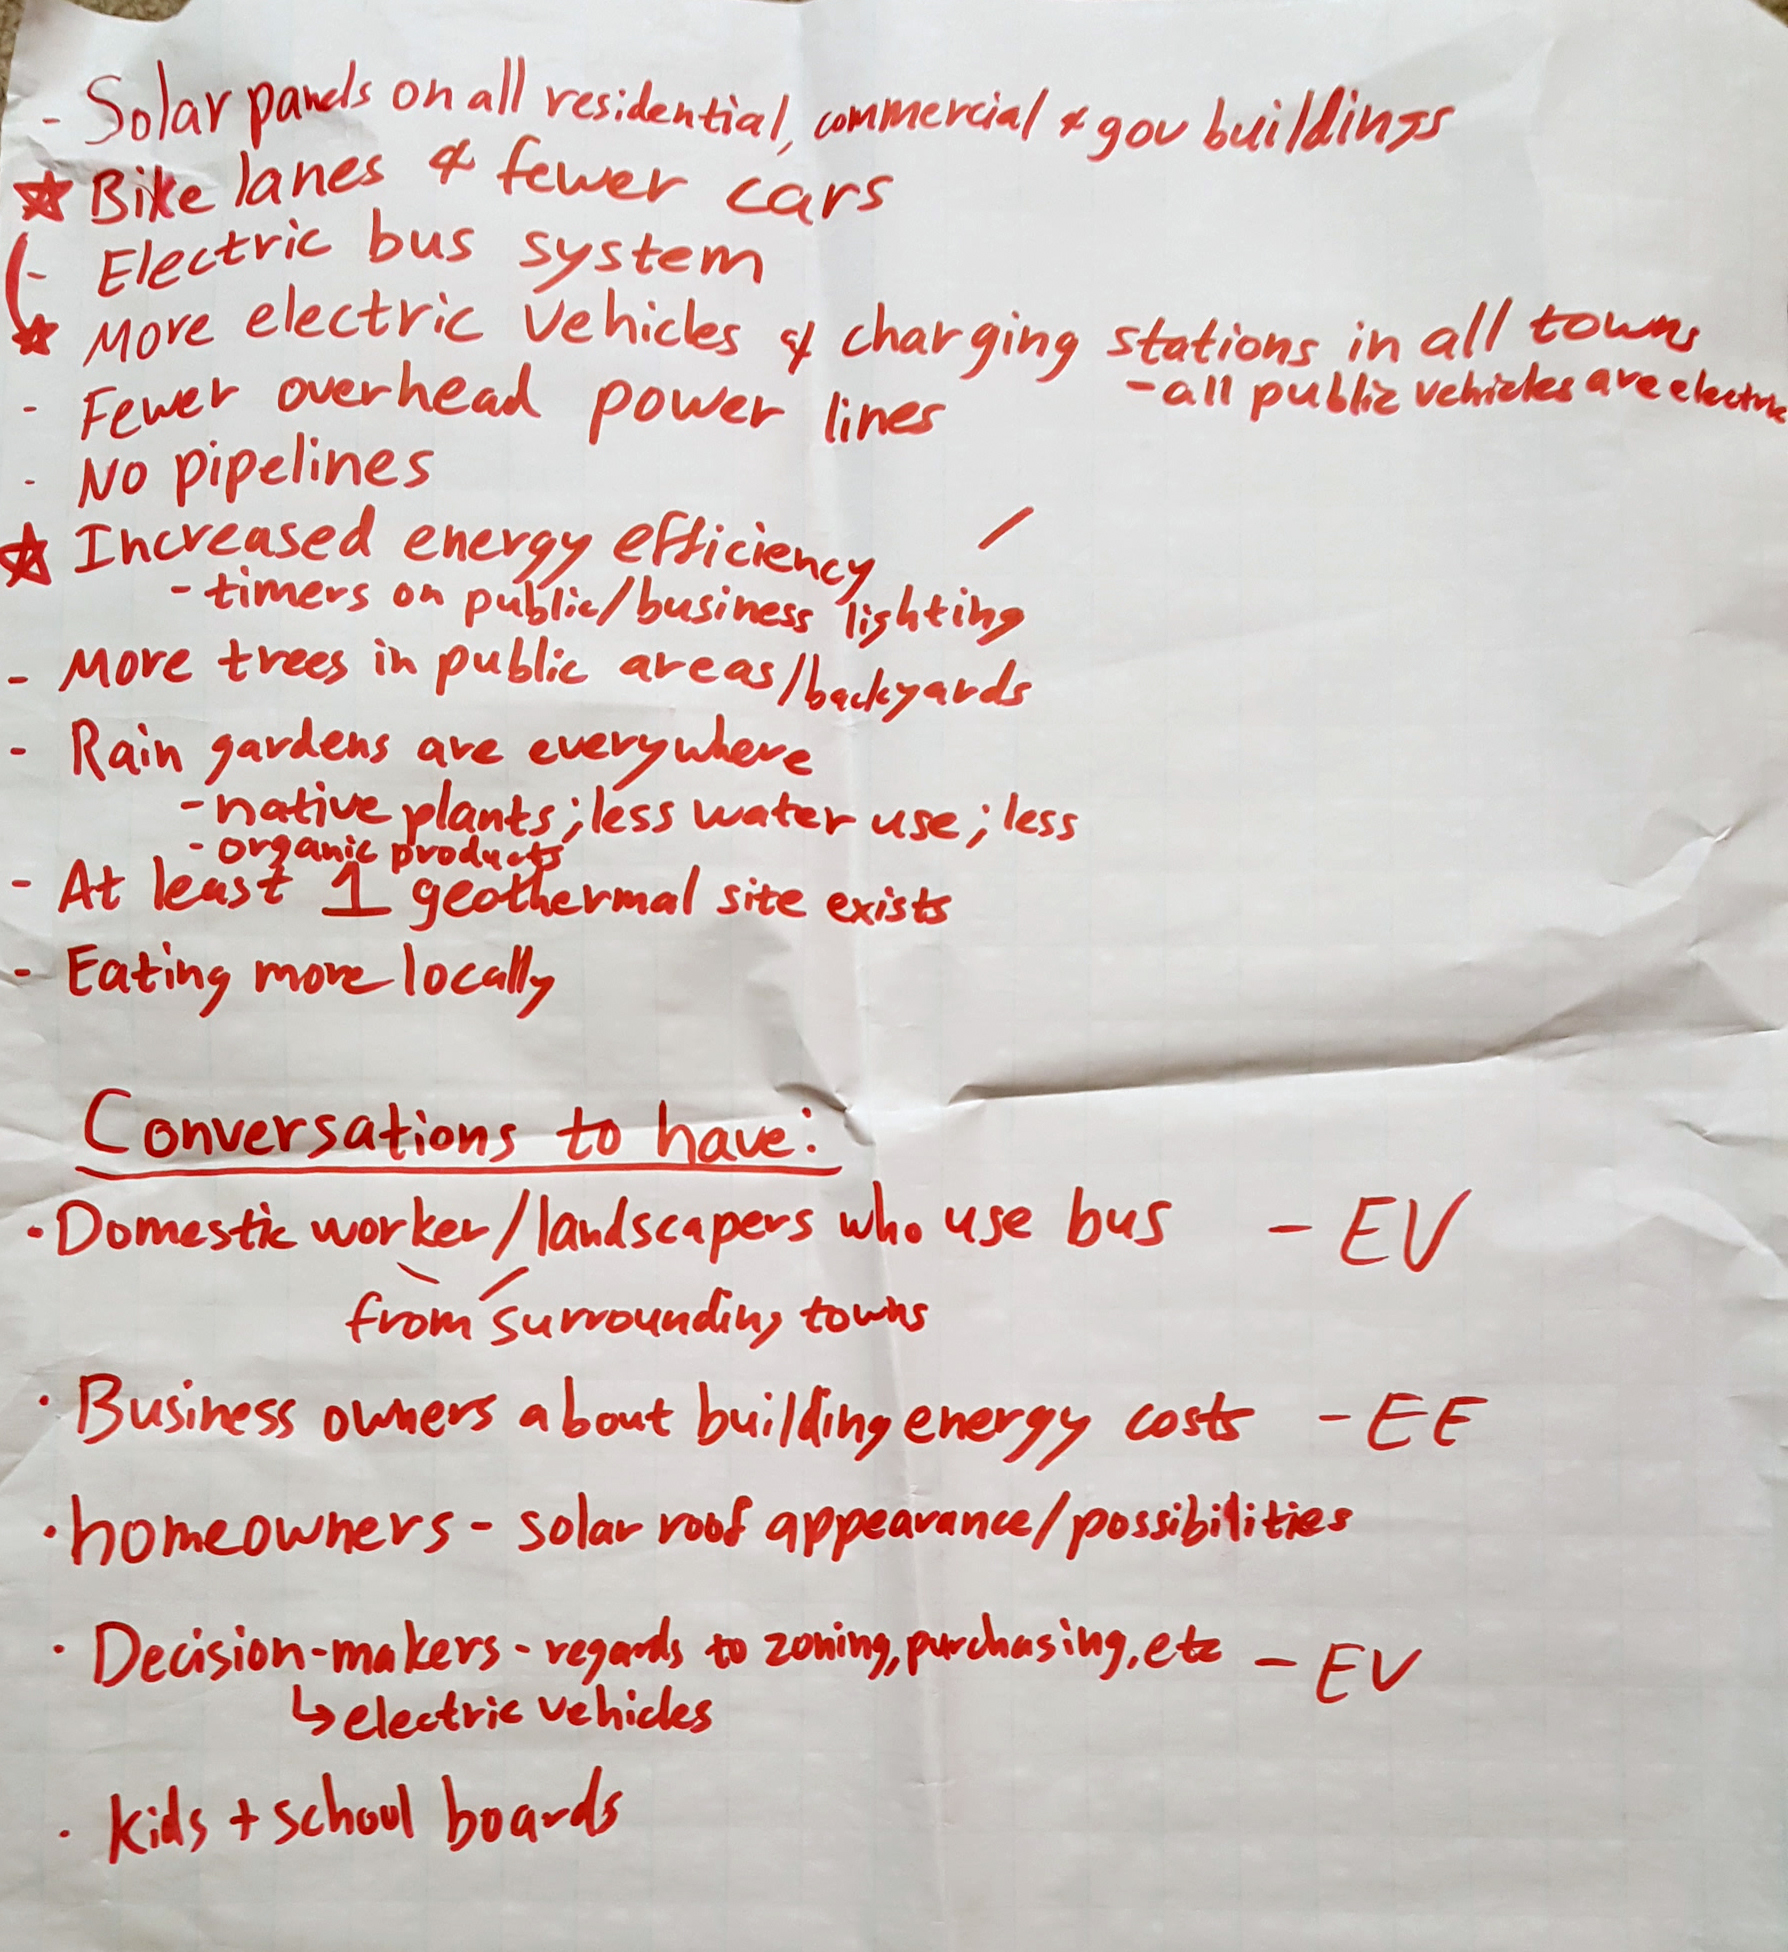 - Solar panels on all residential, commercial & gov buildings
☆ Bike lanes & fewer cars
- Electric bus system
☆ More electric vehicles & charging stations in all towns
- all public vehicles are electric
- Fewer overhead power lines
- No pipelines
☆ Increased energy efficiency
- timers on public/business lighting
- More trees in public areas/backyards
- Rain gardens are everywhere
- native plants; less water use; less
- organic products
- At least 1 geothermal site exists
- Eating more locally
Conversations to have:
· Domestic worker/landscapers who use bus - EV
from surrounding towns
· Business owners about building energy costs - EE
· homeowners - solar roof appearance/possibilities
· Decision-makers - regards to zoning, purchasing, etc - EV
↳ electric vehicles
· Kids + school boards